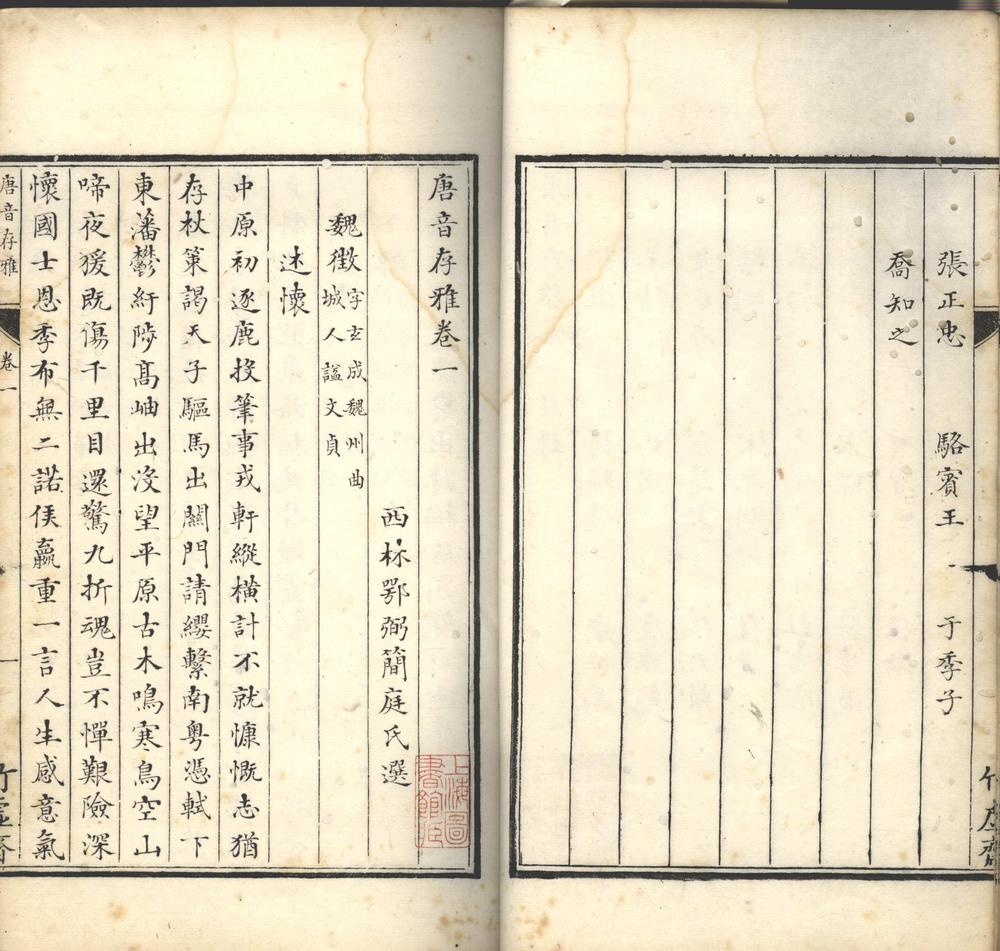 竹虛齋
張正忠 駱賓王 于季子
喬知之
唐音存雅卷一
上海圖書館藏
西林鄂弼簡庭氏選
魏徵 字玄成魏州曲
城人諡文貞
述懷
中原初逐鹿投筆事戎軒縱橫計不就慷慨志猶
存杖策謁天子驅馬出關門請纓繫南粵憑軾下
東藩鬱紆陟高岫出沒望平原古木鳴寒鳥空山
啼夜猨既傷千里目還驚九折魂豈不憚艱險深
懷國士恩季布無二諾侯嬴重一言人生感意氣
唐音存雅 卷一 一 竹虛齋